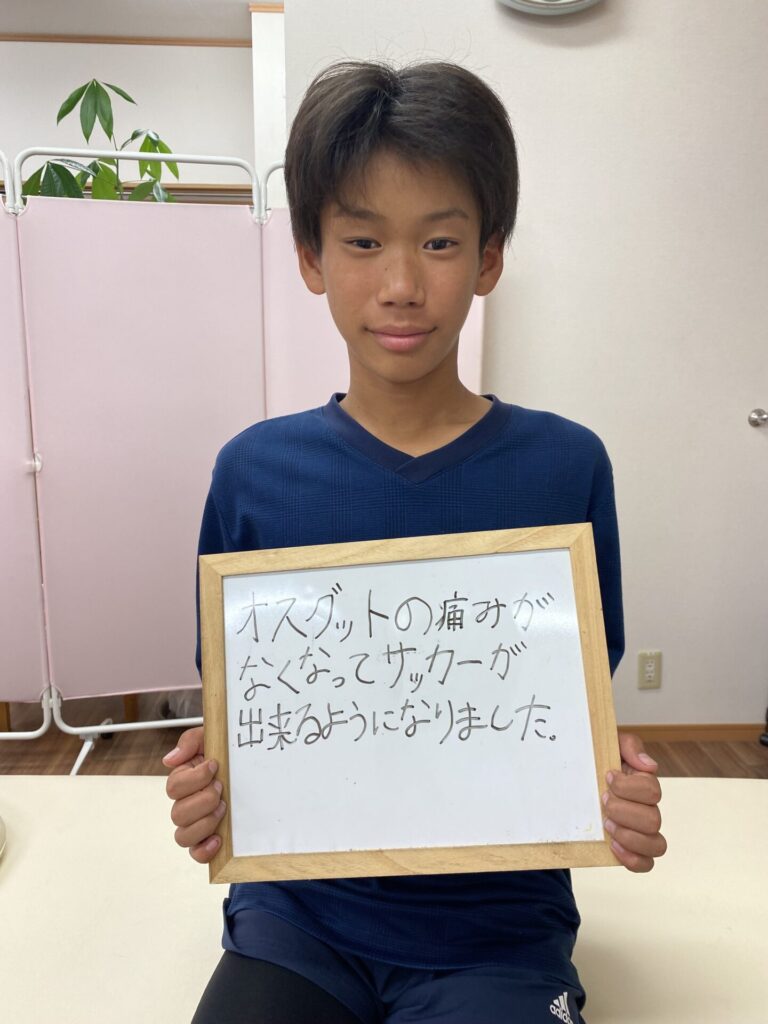 オスグットの痛みが
なくなってサッカーが
出来るようになりました。
adidas